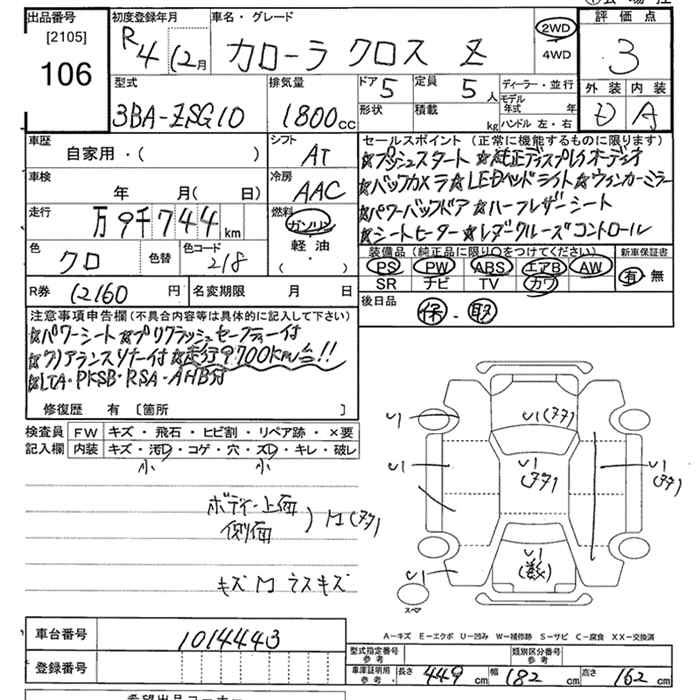 出品番号 初度登録年月 車名・グレード 評価点
[2105] R4 12月 カローラクロス Z 2WD 3
106 4WD
型式 排気量 ドア 5 定員 5人 ディーラー・並行 外装 内装
3BA-ZSG10 1800cc 形状 積載 kg モデル年式 年 D A
ハンドル 左・右
車歴 シフト セールスポイント (正常に機能するものに限ります)
自家用・( ) AT ☆プッシュスタート ☆純正ディスプレイオーディオ
車検 冷房 ☆バックカメラ ☆LEDヘッドライト ☆ウィンカーミラー
年 月( 日) AAC ☆パワーバックドア ☆ハーフレザーシート
走行 燃料 ☆シートヒーター ☆レーダークルーズコントロール
万9千744km ガソリン
色 色替 色コード 軽油 装備品 (純正品に限り○をつけてください) 新車保証書
クロ 218 (・) PS PW ABS エアB AW 有・無
SR ナビ TV カワ
R券 12160円 名変期限 月 日 後日品
保・取
注意事項申告欄 (不具合内容等は具体的に記入して下さい)
☆パワーシート ☆プリクラッシュセーフティー付
☆クリアランスソナー付 ☆走行9,700km台!!
☆LTA・PKSB・RSA・AHB付
修復歴 有 [箇所 ]
検査員 FW キズ・飛石・ヒビ割・リペア跡・×要
記入欄 内装 キズ・汚レ・コゲ・穴・スレ・キレ・破レ
小 小
ボディー上面
側面 ) M(タタ)
キズM ラスキズ
U1 U1(タタ)
U1 U1(タタ) U1(タタ)
U1 U1
スペア
A-キズ E-エクボ U-凹み W-補修跡 S-サビ C-腐食 XX-交換済
車台番号 1014443
登録番号
型式指定番号 参考 類別区分番号 参考
車庫証明用 参考 長さ 449cm 幅 182cm 高さ 162cm
希望出品コーナー